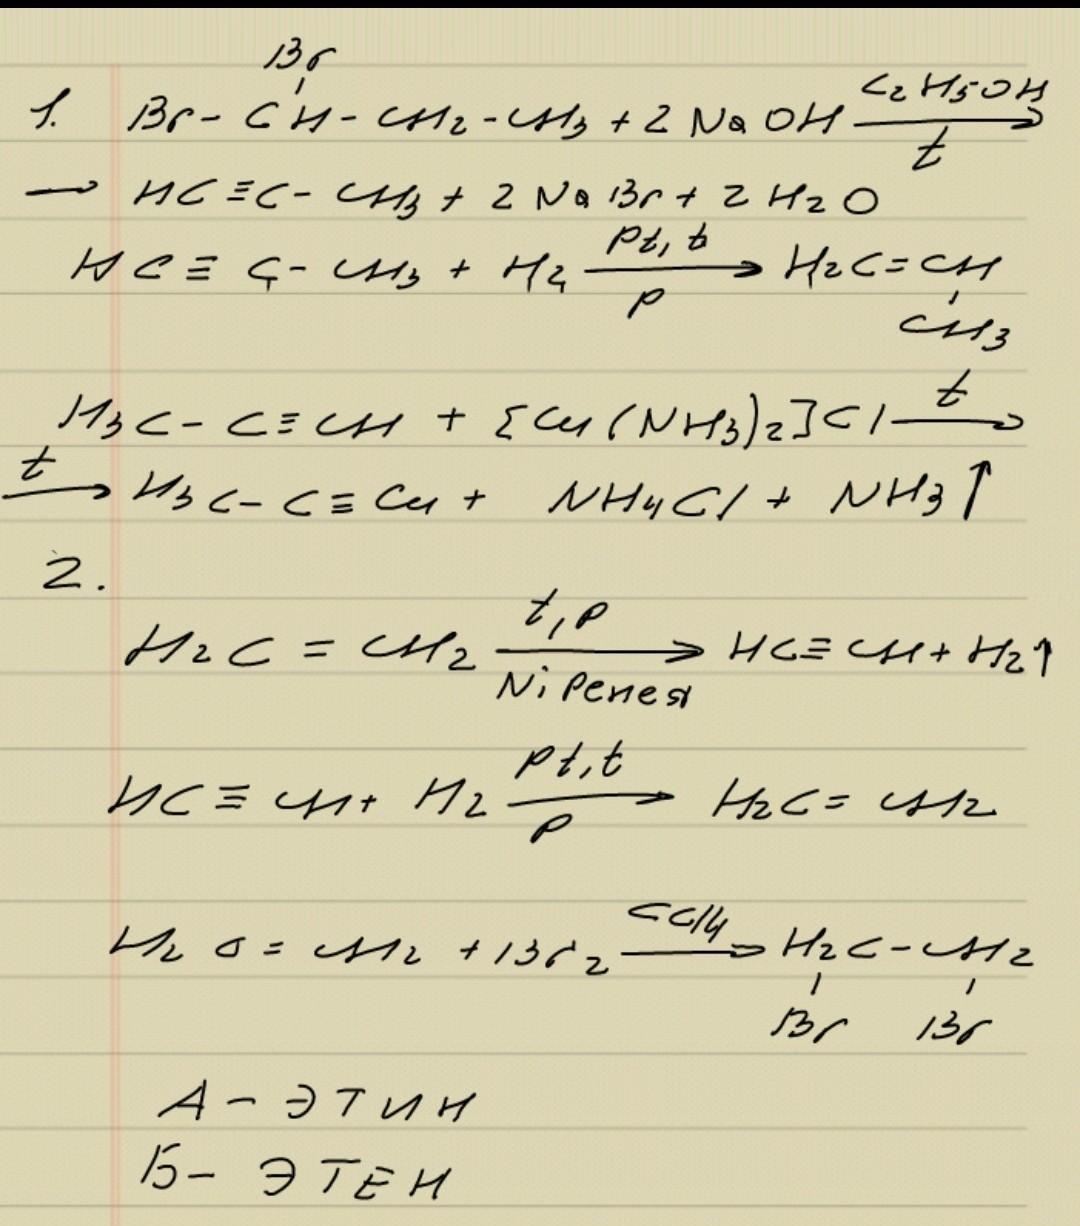 Br
1. Br - CH - CH2 - CH3 + 2 NaOH C2H5OH t →
→ HC≡C - CH3 + 2 NaBr + 2 H2O
HC≡C - CH3 + H2 Pt, t p → H2C=CH
CH3
H3C - C≡CH + [Cu(NH3)2]Cl t →
t → H3C - C≡Cu + NH4Cl + NH3↑
2.
H2C = CH2 t, p Ni Ренея → HC≡CH + H2↑
HC≡CH + H2 Pt, t p → H2C = CH2
H2C = CH2 + Br2 CCl4 → H2C - CH2
Br Br
А - ЭТИН
Б - ЭТЕН